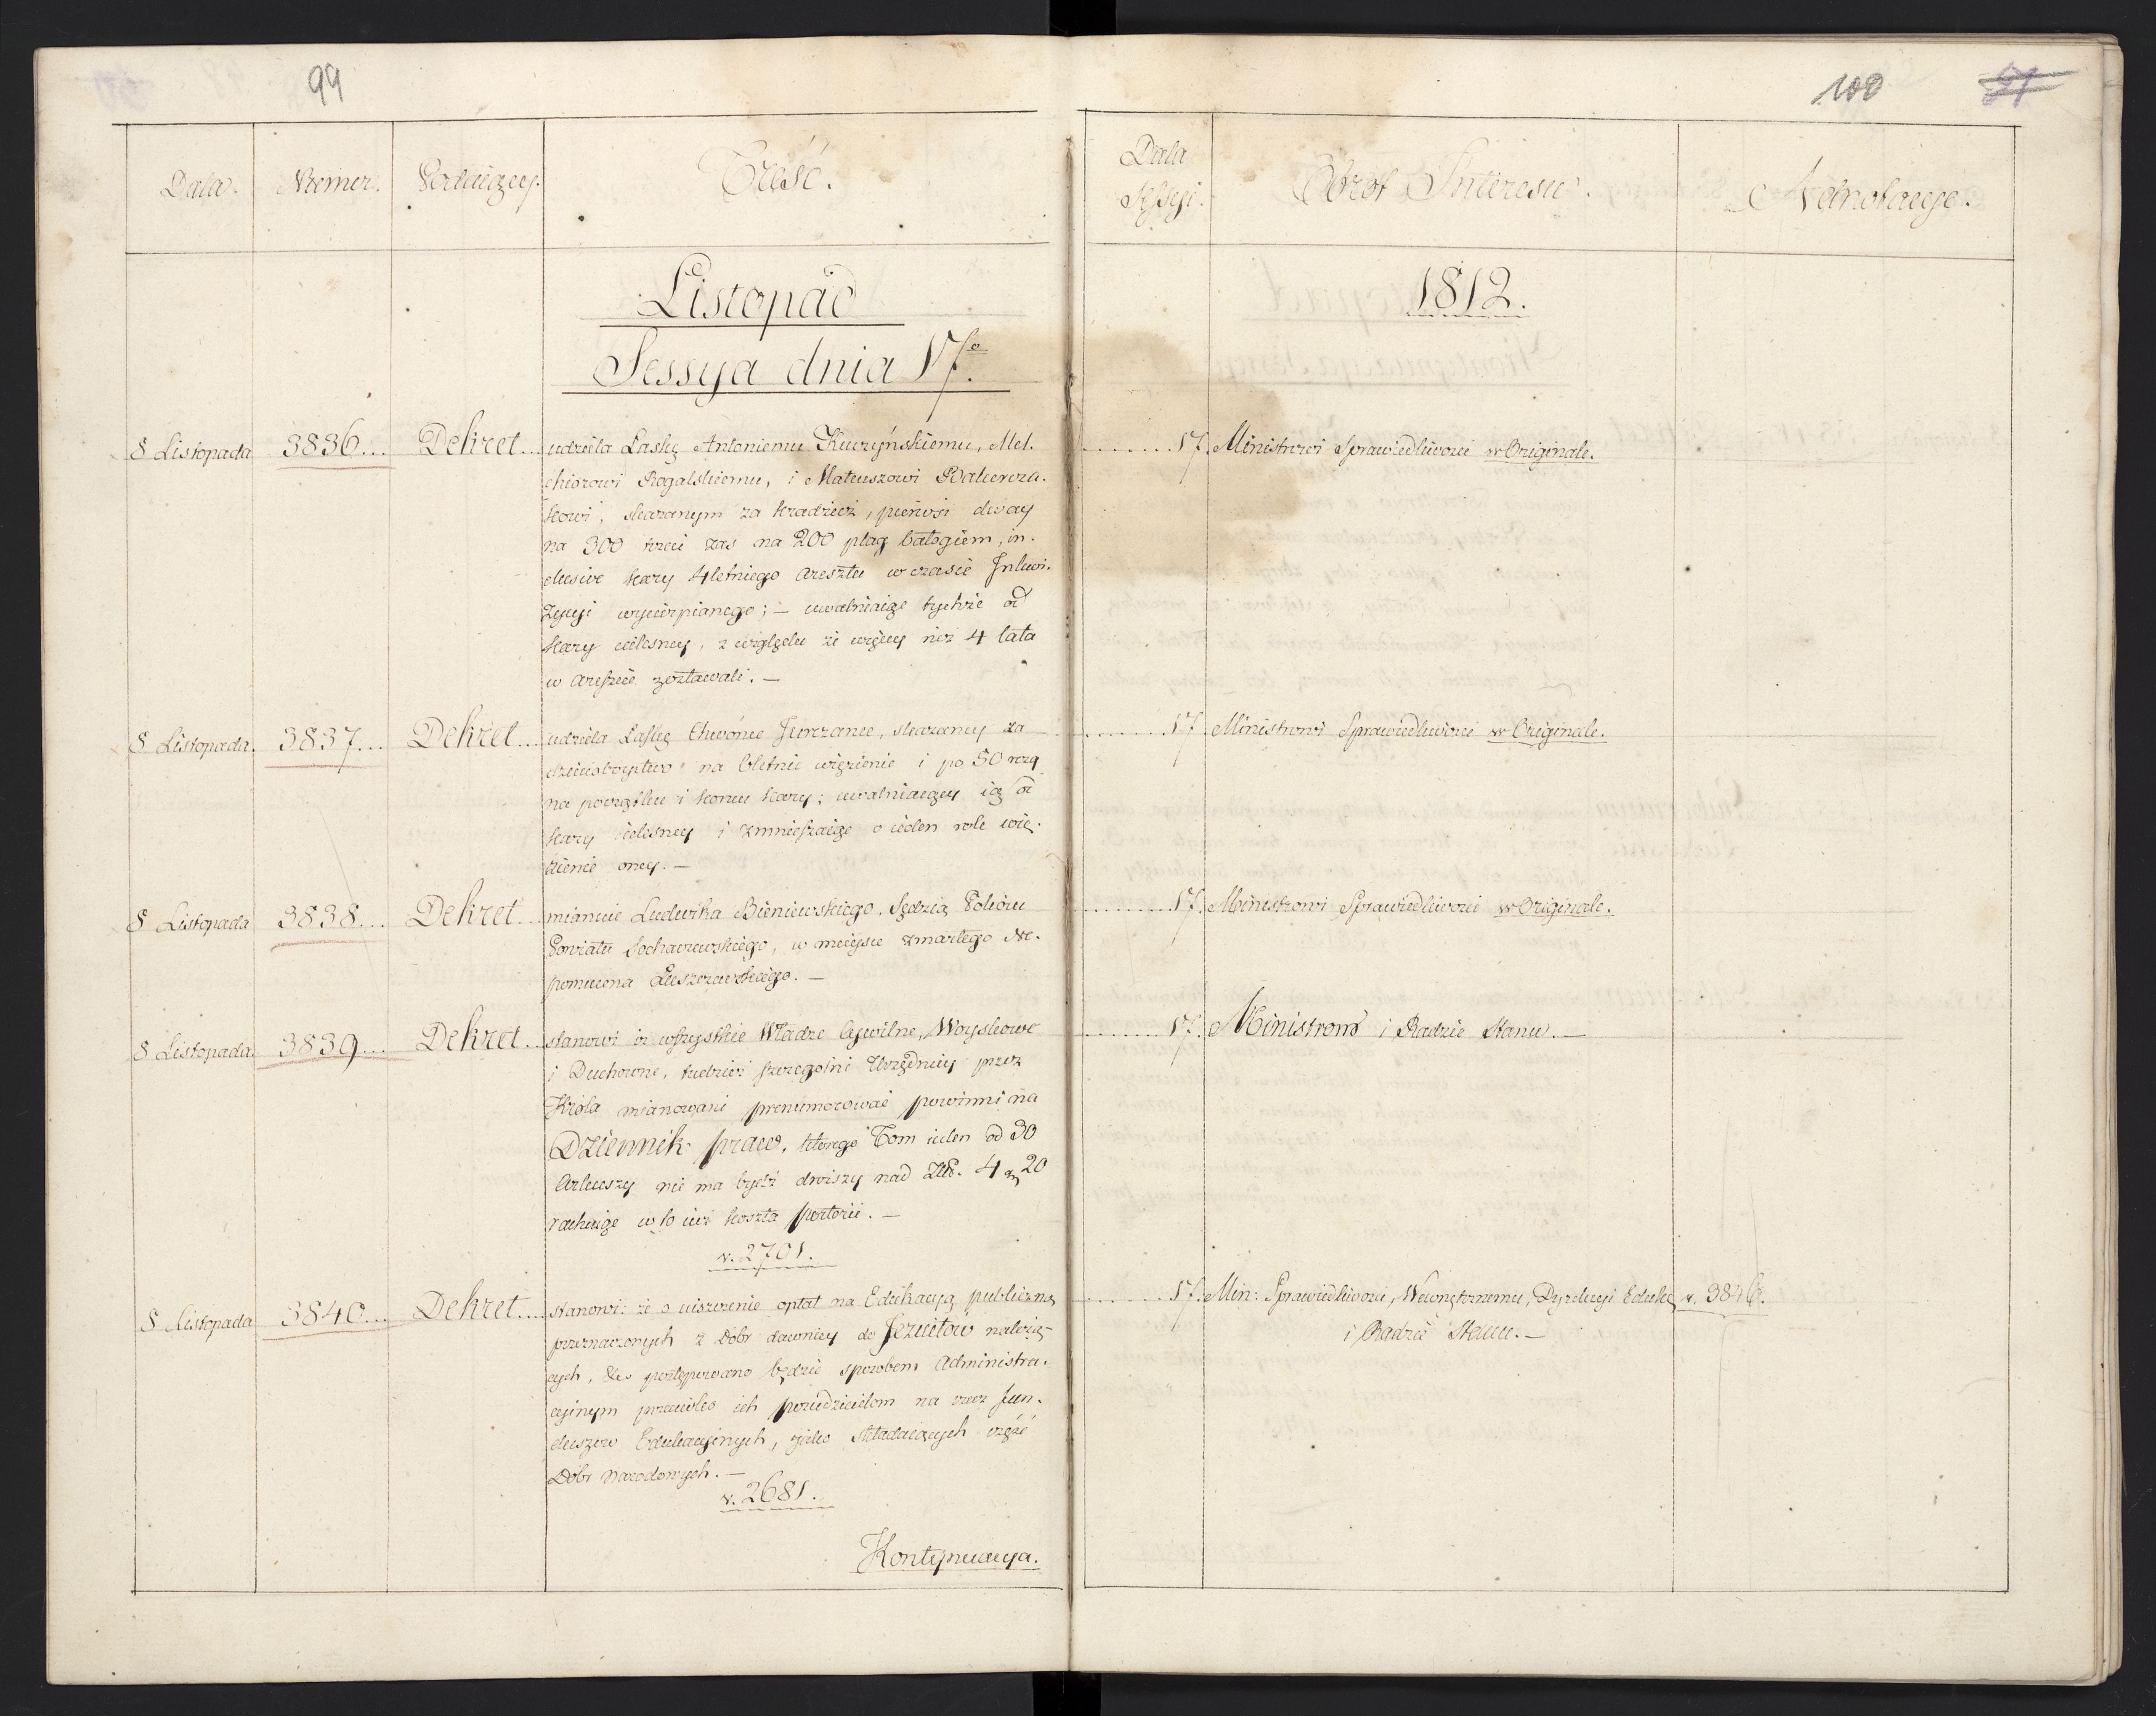 99
Data.
Numer.
Podaiący.
Treść.
Listopad
Sessya dnia 17go.
8 Listopada 3836... Dekret... udziela Łaskę Antoniemu Kuczyńskiemu, Mel-
chiorowi Rogalskiemu, i Mateuszowi
kowi, skazanym za kradzież, pierwsi dway
na 300 trzeci zas na 200 plag batogiem, in-
clusive kary 4letniego aresztu w czasie Inkwi-
zycyi wycierpianego; — uwalniaiąc tychże od
kary cielesney, z względu że więcey niż 4 lata
w areszcie zostawali. —
8 Listopada. 3837... Dekret... udziela Łaskę skazaney za
dzieciobóystwo na letnie więzienie i po 50 rózg
na początku i końcu kary; uwalniaiący ią od
kary cielesney i zmnieyszaiąc o ieden rok wię-
zienie oney. —
8 Listopada 3838... Dekret... mianuie Ludwika Bieniewskiego, Sędzią Pokoiu
Powiatu Sochaczewskiego, w mieysce zmarłego Ne-
pomucena Łuszczewskiego. —
8 Listopada. 3839... Dekret... stanowi iż wszystkie Władze Cywilne, Woyskowe
i Duchowne, tudzież szczegolni Urzędnicy przez
Króla mianowani prenumerować powinni na
Dziennik praw, którego Tom ieden od 30
Arkuszy nie ma bydź droższy nad Złł. 4 gr 20
rachuiąc w to iuż koszta portorii. —
v. 2701.
8 Listopada 3840... Dekret.... stanowi: że o uiszczenie opłat na Edukacyą publiczną
przeznaczonych z Dóbr dawniey do Jezuitow należą-
cych, postępowano będzie sposobem Administra-
cyinym przeciwko ich posiedzicielom na rzecz Fun-
duszow Edukacyinych, iako składaiących część
Dóbr Narodowych. —
v. 2681.
Kontynuacya.
100
51
Data
Sessyi.
Obrót Interesu.
Adnotacye.
1812.
........17. Ministrowi Sprawiedliwości w Originale.
........17. Ministrowi Sprawiedliwości w Originale.
........17. Ministrowi Sprawiedliwości w Originale.
........17. Ministrom i Radzie Stanu. —
........17. Min: Sprawiedliwości, Wewnętrznemu, Dyrekcyi Eduk: v. 3846.
i Radzie Stanu. —